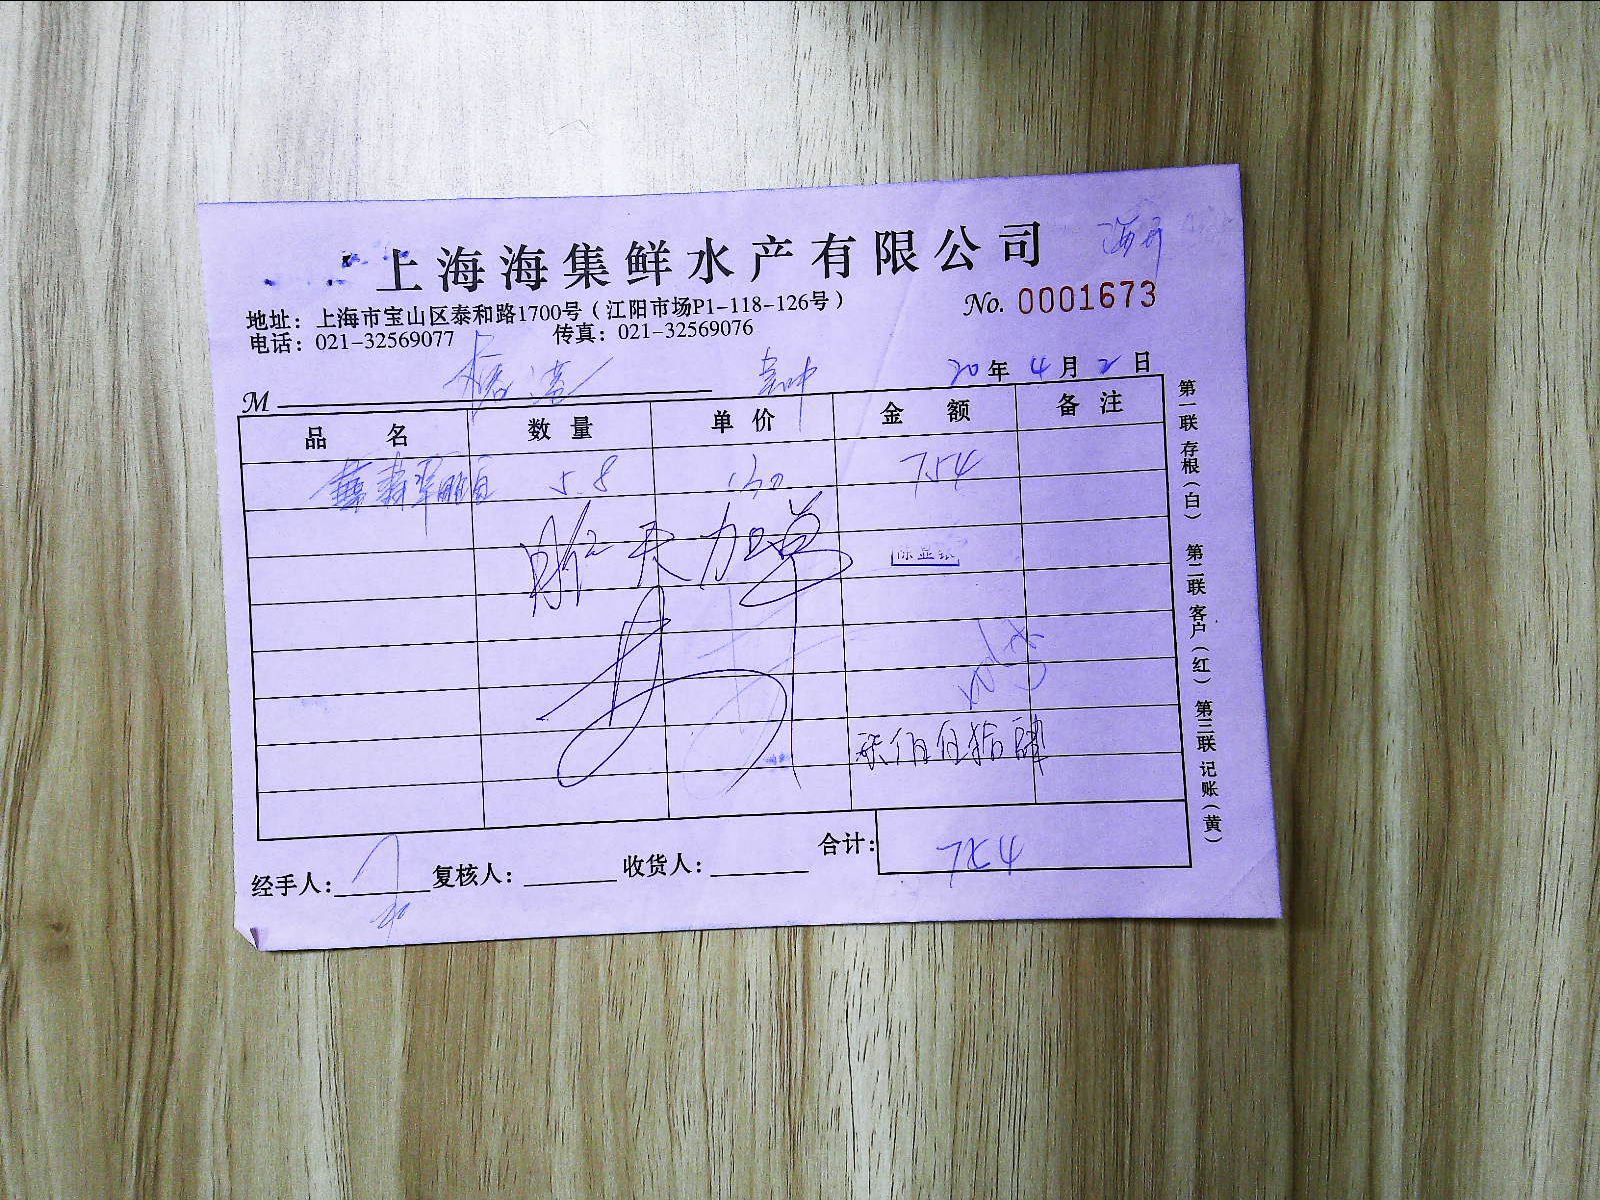 上海海集鲜水产有限公司
No. 0001673
地址：上海市宝山区泰和路1700号（江阳市场P1-118-126号）
电话：021-32569077 传真：021-32569076
M
20年4月2日
品名 数量 单价 金额 备注
5.8 130 754
昨天加单
柒佰伍拾肆
合计：754
经手人： 复核人： 收货人：
第一联 存根（白） 第二联 客户（红） 第三联 记账（黄）